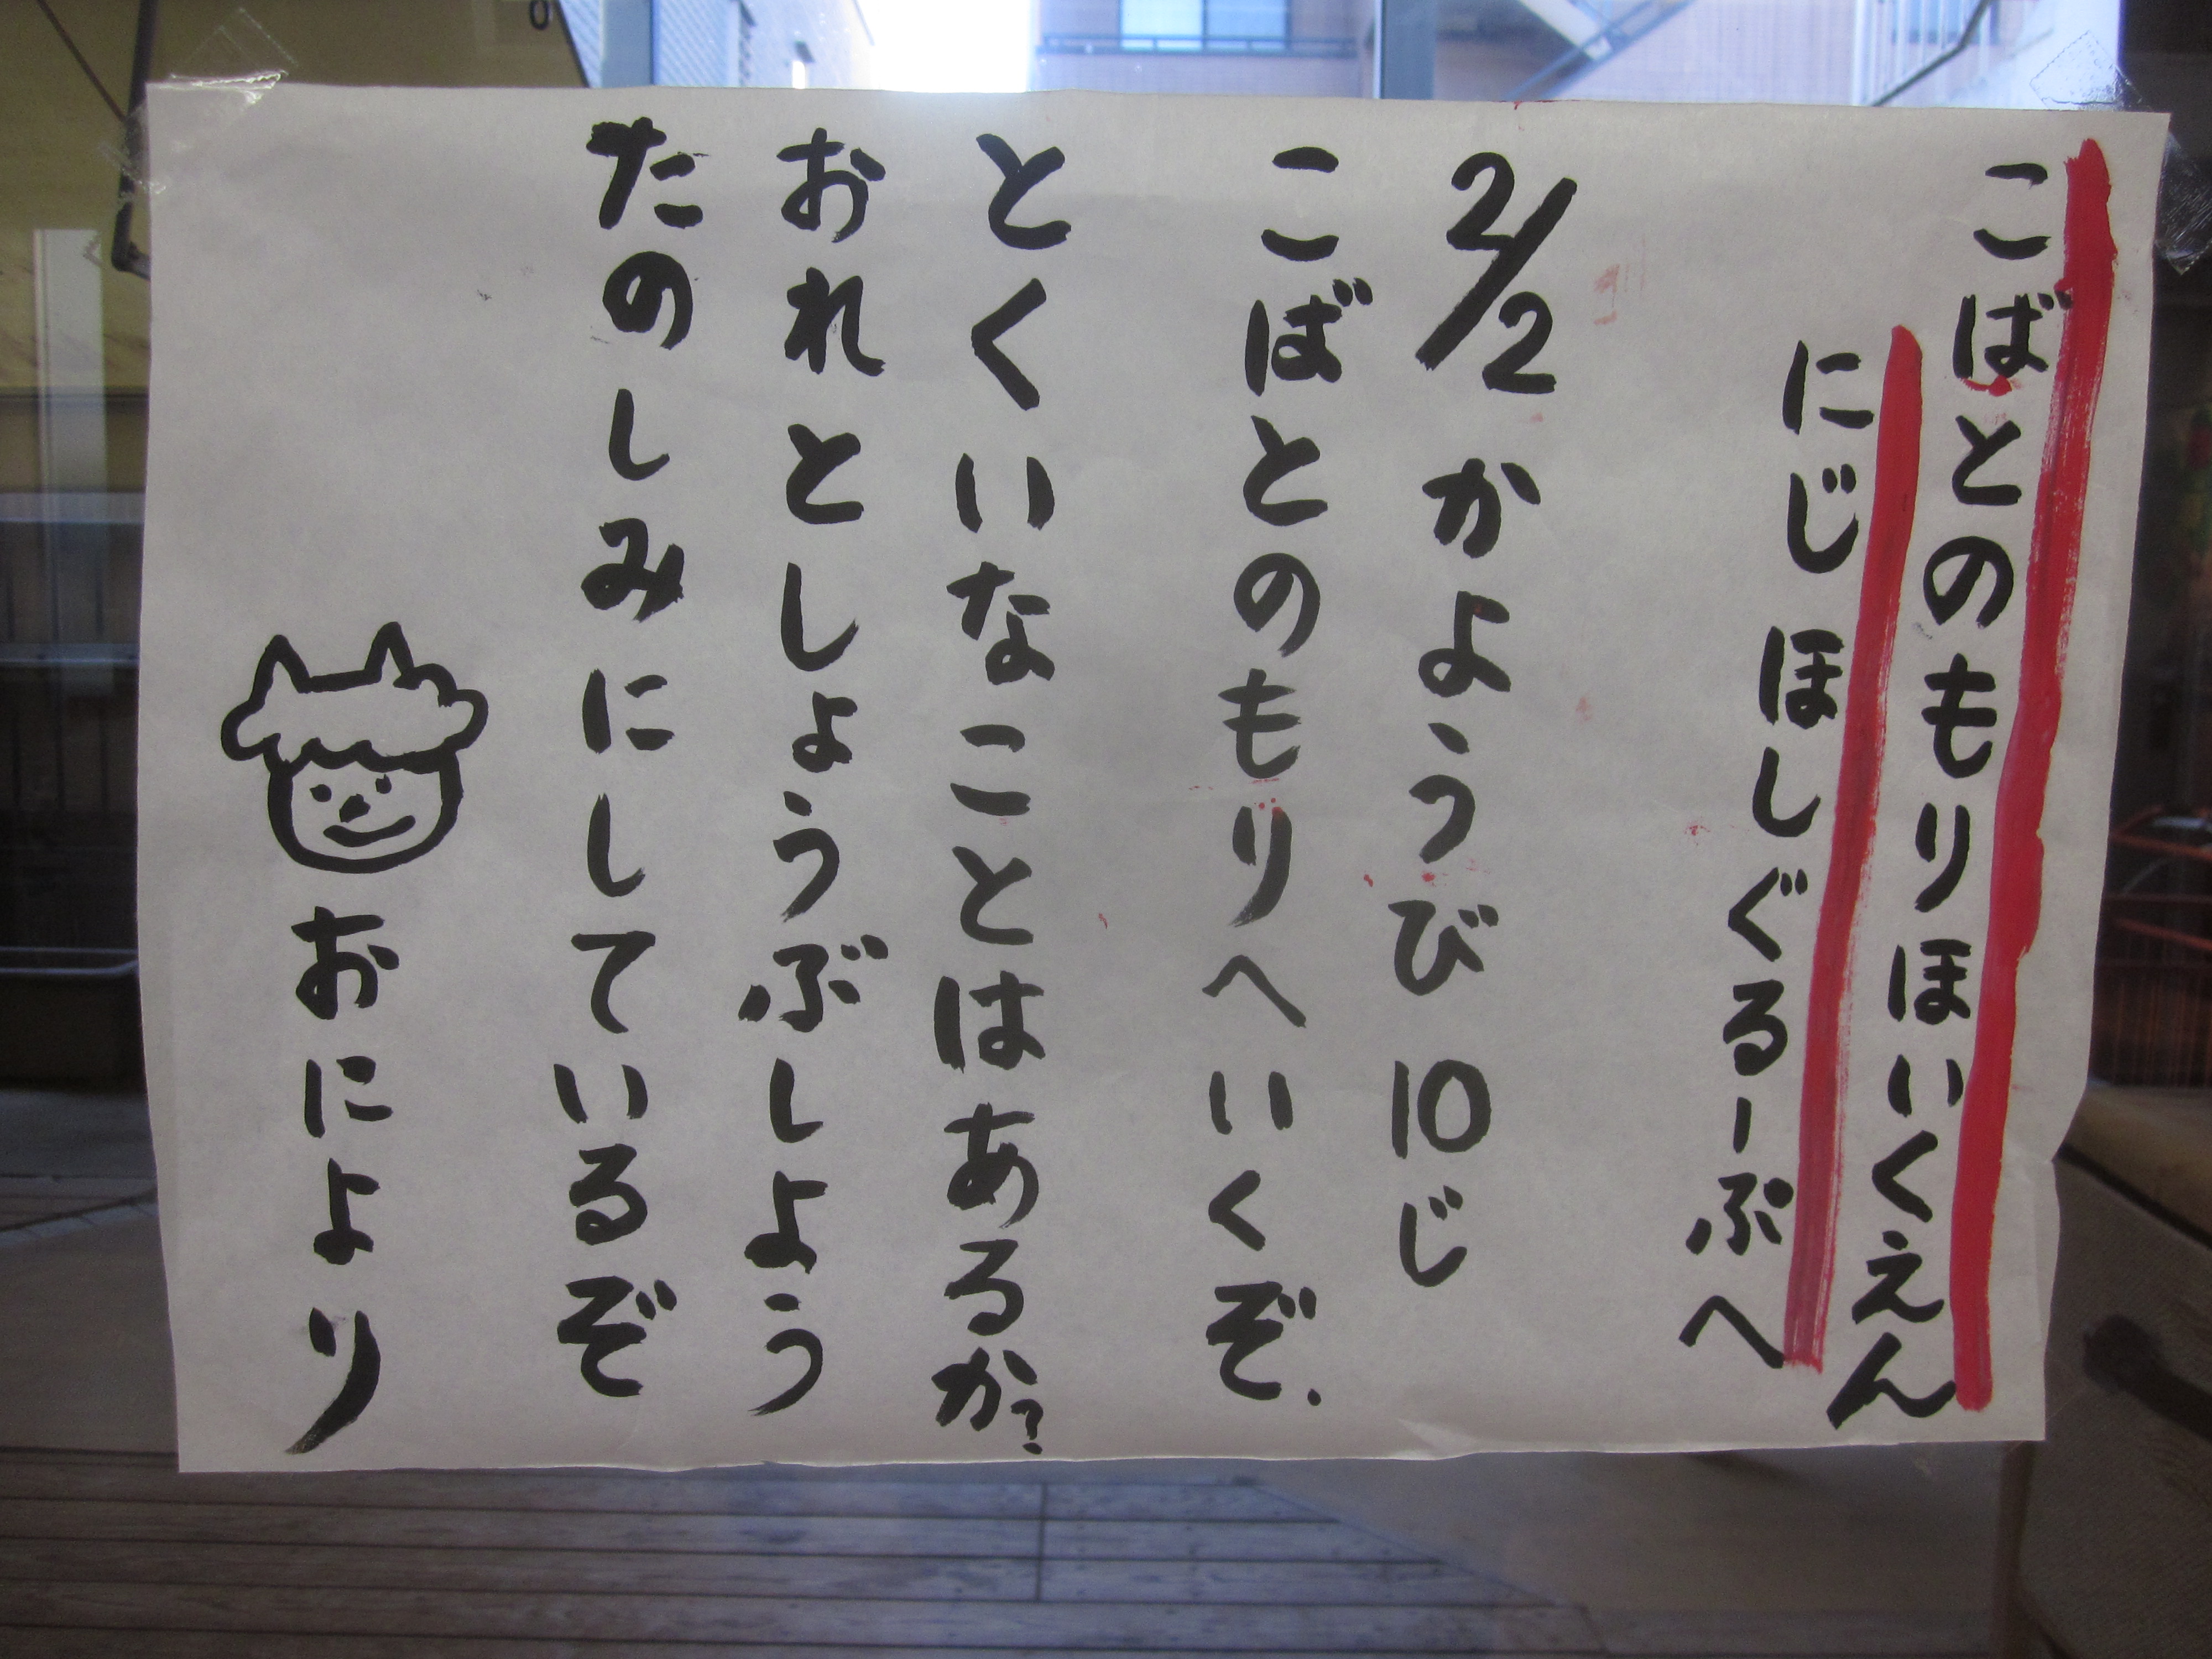 こばとのもりほいくえん
にじ ほしぐるーぷへ
2/2 かようび 10じ
こばとのもりへいくぞ.
とくいなことはあるか?
おれとしょうぶしよう
たのしみにしているぞ
おによより